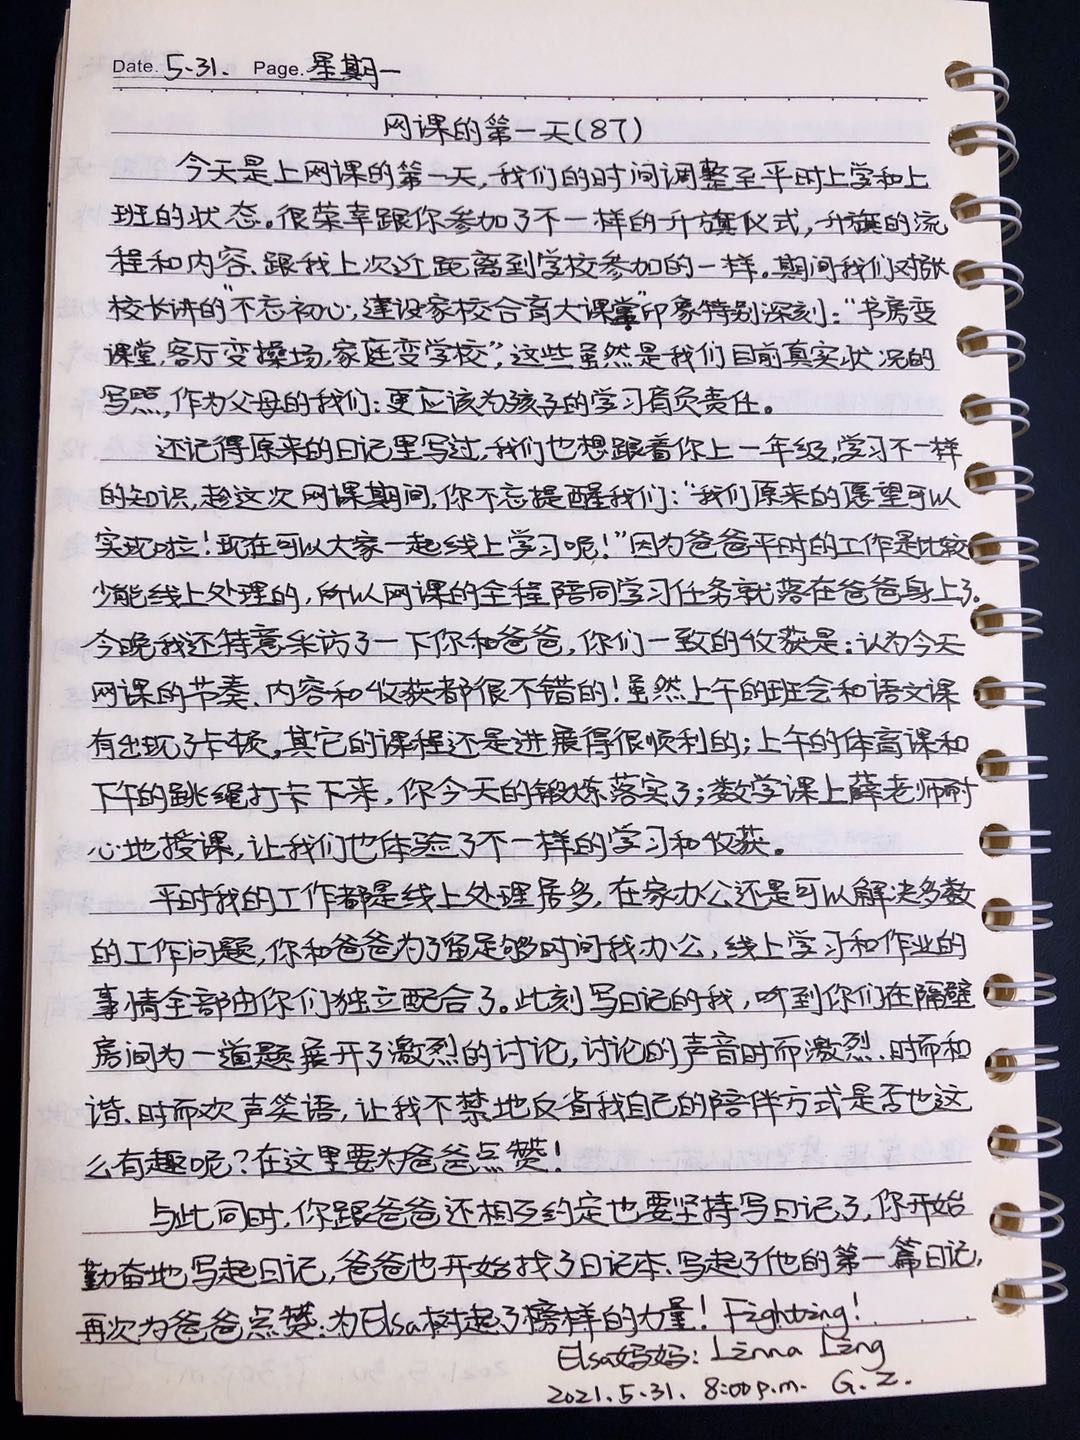 Date. 5.31. Page. 星期一
网课的第一天(87)
今天是上网课的第一天,我们的时间调整至平时上学和上
班的状态。很荣幸跟你参加了不一样的升旗仪式,升旗的流
程和内容、跟我上次近距离到学校参加的一样。期间我们对张
校长讲的"不忘初心,建设家校合育大课堂"印象特别深刻:"书房变
课堂,客厅变操场,家庭变学校",这些虽然是我们目前真实状况的
写照,作为父母的我们:更应该为孩子的学习肩负责任。
还记得原来的日记里写过,我们也想跟着你上一年级,学习不一样
的知识,趁这次网课期间,你不忘提醒我们:"我们原来的愿望可以
实现啦!现在可以大家一起线上学习呢!"因为爸爸平时的工作是比较
少能线上处理的,所以网课的全程陪同学习任务就落在爸爸身上了。
今晚我还特意采访了一下你和爸爸,你们一致的收获是:认为今天
网课的节奏、内容和收获都很不错的!虽然上午的班会和语文课
有出现了卡顿,其它的课程还是进展得很顺利的;上午的体育课和
下午的跳绳打卡下来,你今天的锻炼落实了;数学课上薛老师耐
心地授课,让我们也体验了不一样的学习和收获。
平时我的工作都是线上处理居多,在家办公还是可以解决多数
的工作问题,你和爸爸为了留足够时间我办公,线上学习和作业的
事情全部由你们独立配合了。此刻写日记的我,听到你们在隔壁
房间为一道题展开了激烈的讨论,讨论的声音时而激烈、时而和
谐、时而欢声笑语,让我不禁地反省我自己的陪伴方式是否也这
么有趣呢?在这里要为爸爸点赞!
与此同时,你跟爸爸还相互约定也要坚持写日记了,你开始
勤奋地写起日记,爸爸也开始找了日记本、写起了他的第一篇日记,
再次为爸爸点赞:为Elsa树起了榜样的力量!Fighting!
Elsa妈妈:Linna Ling
2021.5.31. 8:00p.m. G.Z.